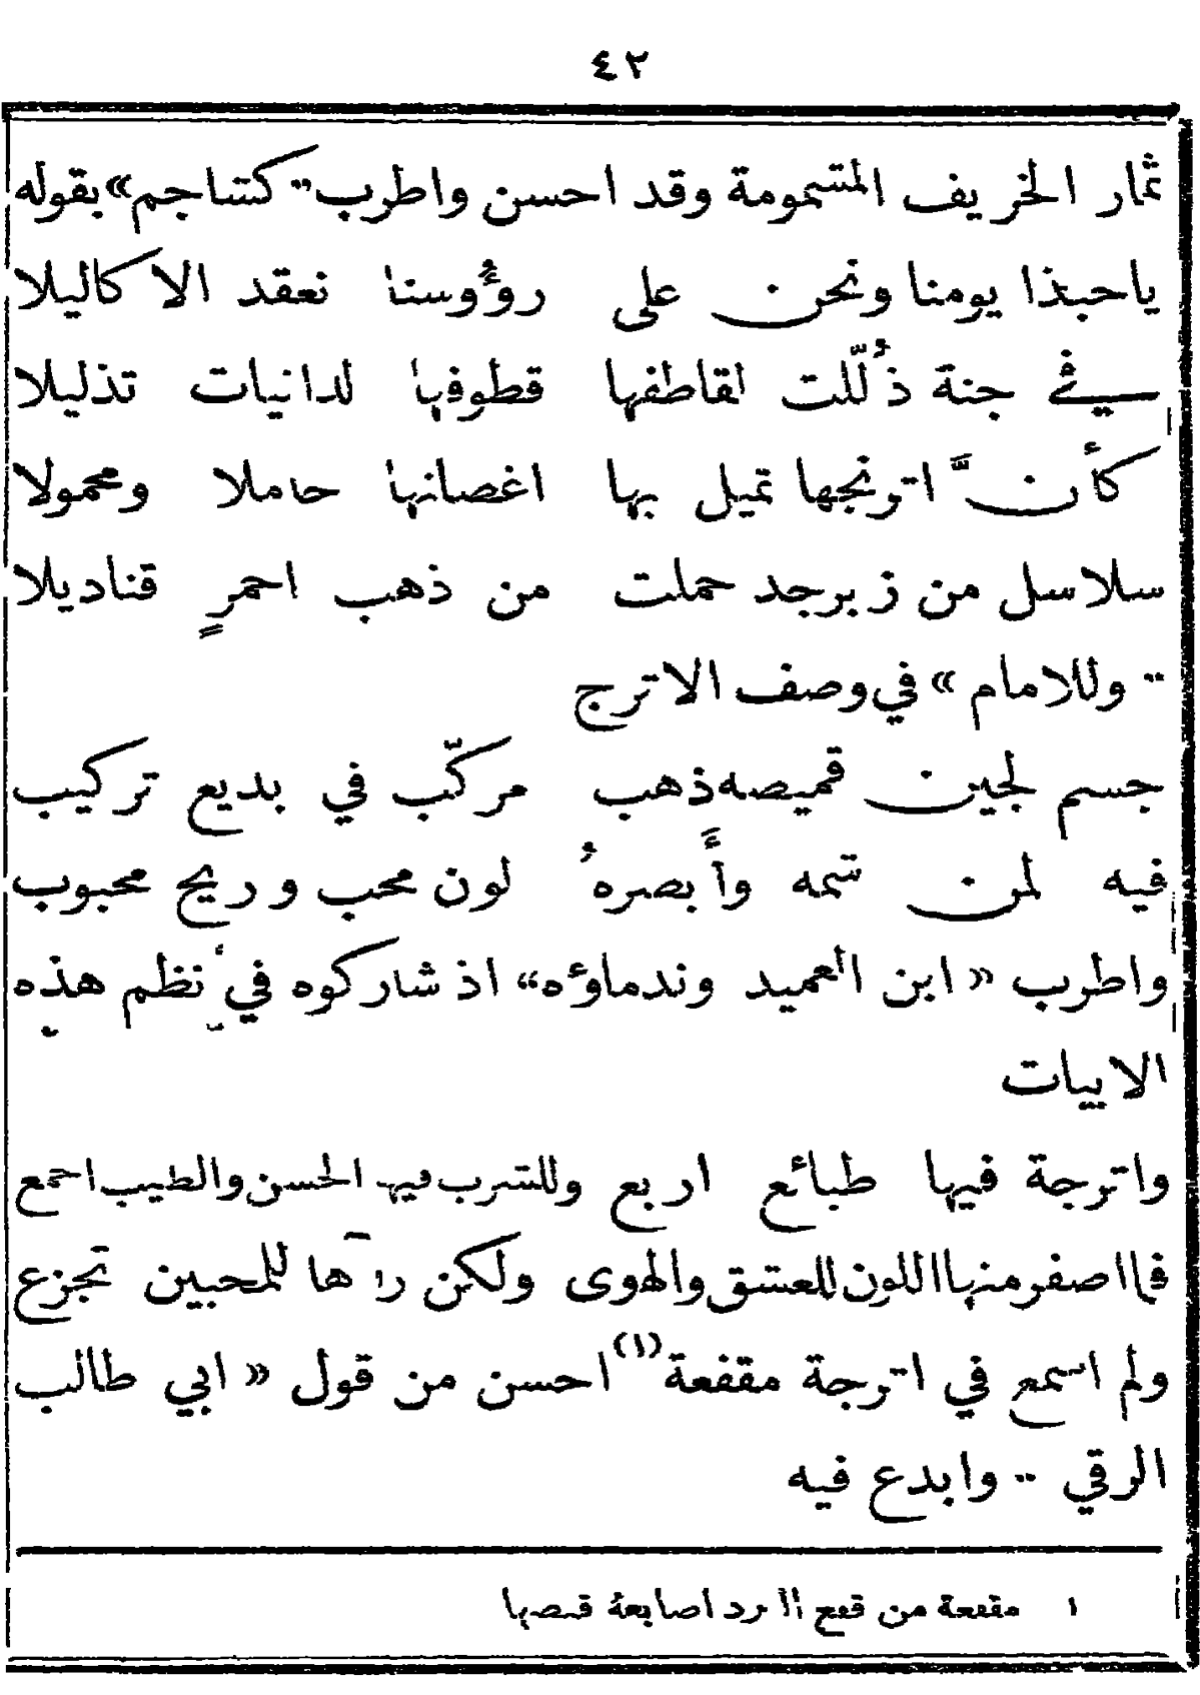 ٤٢
ثمار الخريف المشمومة وقد احسن واطرب «كشاجم» بقوله
ياحبذا يومنا ونحن على رؤُوسنا نعقد الاكاليلا
في جنة ذُلّلت لقاطفها قطوفها لدانيات تذليلا
كأنَّ اترنجها تميل بها اغصانها حاملا ومحمولا
سلاسل من زبرجد حملت من ذهب احمرٍ قناديلا
«وللامام» في وصف الاترج
جسم لجين قميصه ذهب مركّب في بديع تركيب
فيه لمن شمه وأَبصرهُ لون محب وريح محبوب
واطرب «ابن العميد وندماؤه» اذ شاركوه في نظم هذه
الابيات
واترجة فيها طبائع اربع وللشرب فيها الحسن والطيب اجمع
فما اصفر منها اللون للعشق والهوى ولكن رآها للمحبين تجزع
ولم اسمع في اترجة مقفعة (١) احسن من قول «ابي طالب
الرقي» وابدع فيه
١ مقفعة من قفع البرد اصابعهُ قبضها